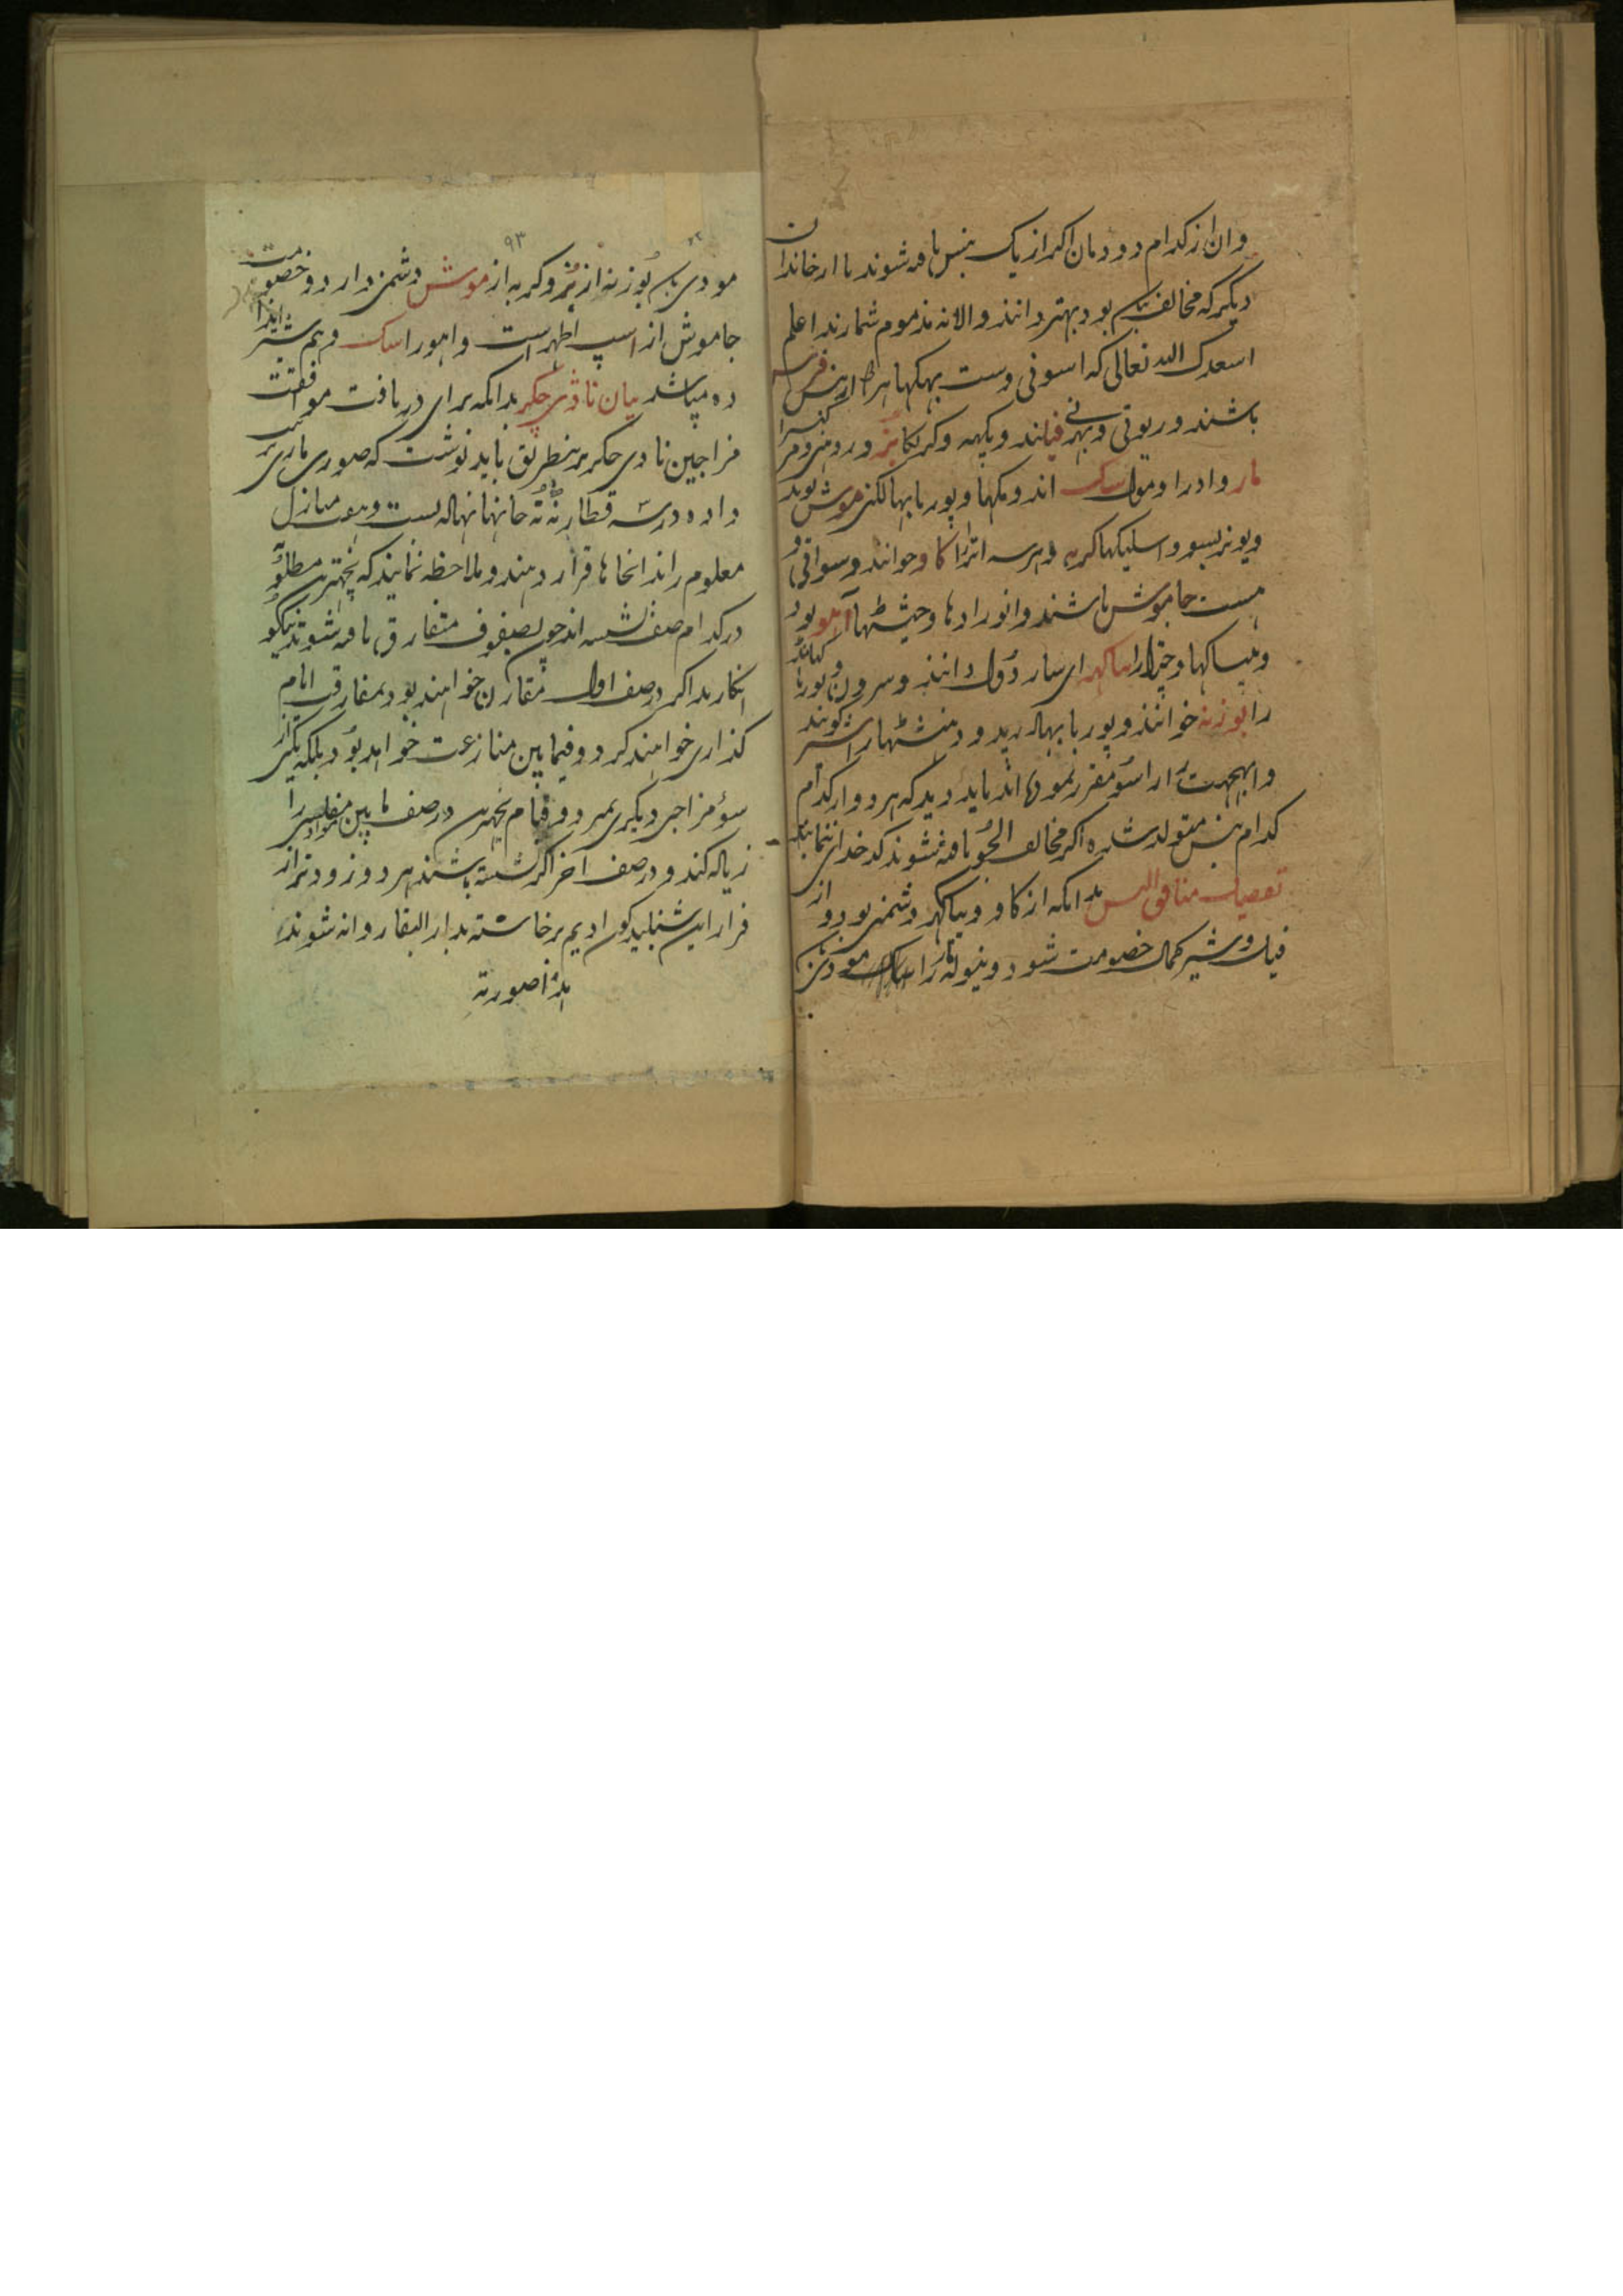 وان از کدام دودمان اکر از یک بنس یافه شوند یا از خاندان
دیکر که مخالف بان بود بهتر دانند والا نه مذموم شمارند اعلم
اسعدک الله تعالی که اسونی وست بهکها هردو از بنس فرس
باشند وریوتی وبهرنی فیلند وپکهه وکرتکا بز وروهنی ومر
مار وادرا ومول سک اند ومکها وپوربا بهالکنی موش بوند
وپونربسو واسلیکها کربه وهرسه اترا کاو خوانند وسواتی و
هست جاموش باشند وانورادها وجیشتها آهو بود
وبیساکها وچترا را بیاکهر ای دانند وسرون وپوربا کهاند
را بوزنه خوانند وپوربا بهادرپد ودهنشتها را شیر کویند
وابهجت را راسو مقرر نموده اند باید دید که هردو از کدام
کدام بنس متولد شده اکر مخالف یافته شوند کدخدای ننمایند
تفصیل منافی بنس بدانکه از کاو وبیاکهر دشمنی بود واز
فیل وشیر کمال خصومت شود ونیوله را مار مودی
۹۳
مودی بان بوزنه از بز وکربه از موش دشمنی دارد وخصومت
جاموش از اسپ اظهر است واهو را سک وبهم شیر ایذا
ده میباشد بیان نادی چکر بدانکه برای دریافت موافقت
مزاجین نادی چکر برینطریق باید نوشت که صوری ماری
داده در سه قطار نه نه خانها نهاله بست وهفت منازل
معلوم را در انخاها قرار دهند وملاحظه نمایند که نچهتر مطلوب
در کدام صف نشسته اند چون بصفوف متفارق یافه شوند نیکو
انکارید اکر در صف اول مقارن خواهند بود بمفارقت ایام
کذاری خواهند کرد وفیمابین منازعت خواهد بود بلکه یکی از
سوٴ مزاجی دیکری بمیرد وقیام نچهترین در صف مابین مفلسی را
زیاله کند ودر صف اخر اکر نشسته باشند هر دو زودتر از
فرار این شنبلیدکون ادیم برخاسته بدار البقا روانه شوند
هذا صورته